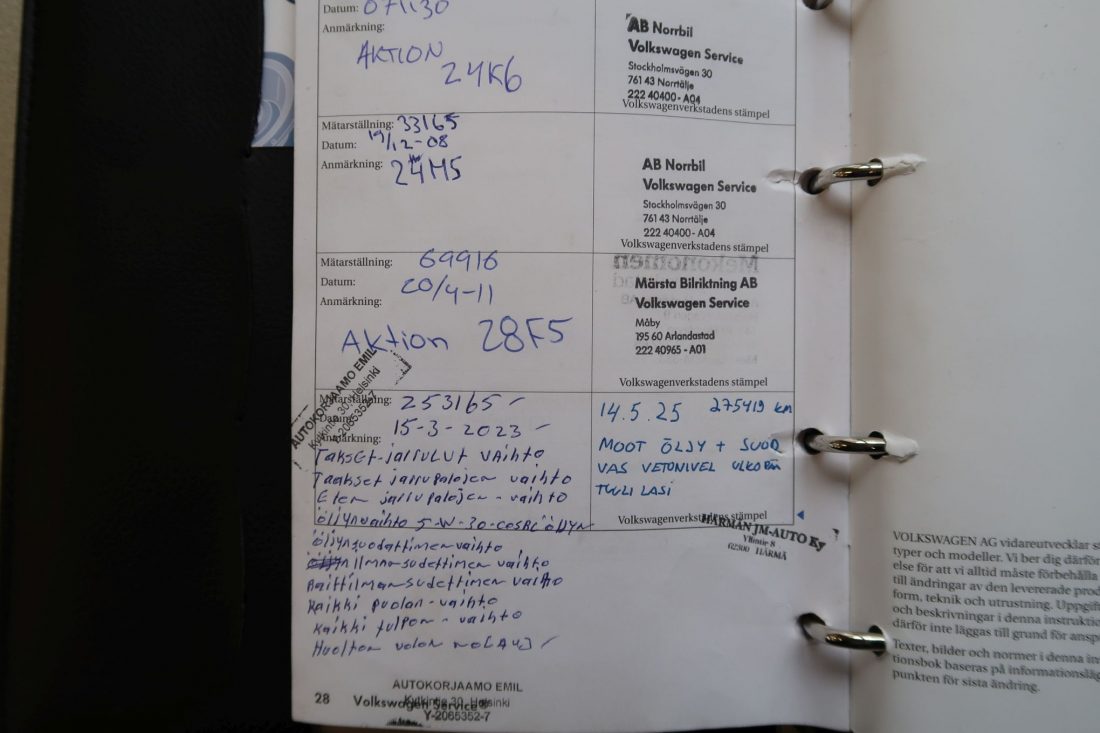 Datum: 071130
Anmärkning:
AKTION
24K6
AB Norrbil
Volkswagen Service
Stockholmsvägen 30
761 43 Norrtälje
222 40400 - A04
Volkswagenverkstadens stämpel
Mätarställning: 33165
Datum: 19/12-08
Anmärkning: 24M5
AB Norrbil
Volkswagen Service
Stockholmsvägen 30
761 43 Norrtälje
222 40400 - A04
Volkswagenverkstadens stämpel
Mätarställning: 69916
Datum: 20/4-11
Anmärkning:
Aktion 28F5
Mekonomen
Märsta Bilriktning AB
Volkswagen Service
Måby
195 60 Arlandastad
222 40965 - A01
Volkswagenverkstadens stämpel
AUTOKORJAAMO EMIL
Kylkintie 30, Helsinki
Y-2065352-7
Mätarställning: 253165
Datum: 15-3-2023
Anmärkning:
Takset-jarrulut vaihto
Taakset jarrupalojen vaihto
Eten jarrupalojen - vaihto
öljynvaihto 5-W-30
öljynsuodattimen vaihto
ilmansudettimen vaihto
Raittilmansudettimen vaihto
Kaikki puolan - vaihto
Kaikki tulpon - vaihto
Huolton valon
14.5.25 275419 km
MOOT ÖLJY + SUOD
VAS VETONIVEL ULKOPÄÄ
TUULILASI
Volkswagenverkstadens stämpel
HÄRMÄN JM-AUTO Ky
Yllintie 8
62300 HÄRMÄ
28
Volkswagen Service
AUTOKORJAAMO EMIL
Kylkintie 30, Helsinki
Y-2065352-7
VOLKSWAGEN AG vidareutvecklar
typer och modeller. Vi ber dig därför
else för att vi alltid måste förbehålla
till ändringar av den levererade
form, teknik och utrustning.
och beskrivningar i denna
därför inte läggas till grund för
Texter, bilder och normer i denna
tionsbok baseras på
punkten för sista ändring.